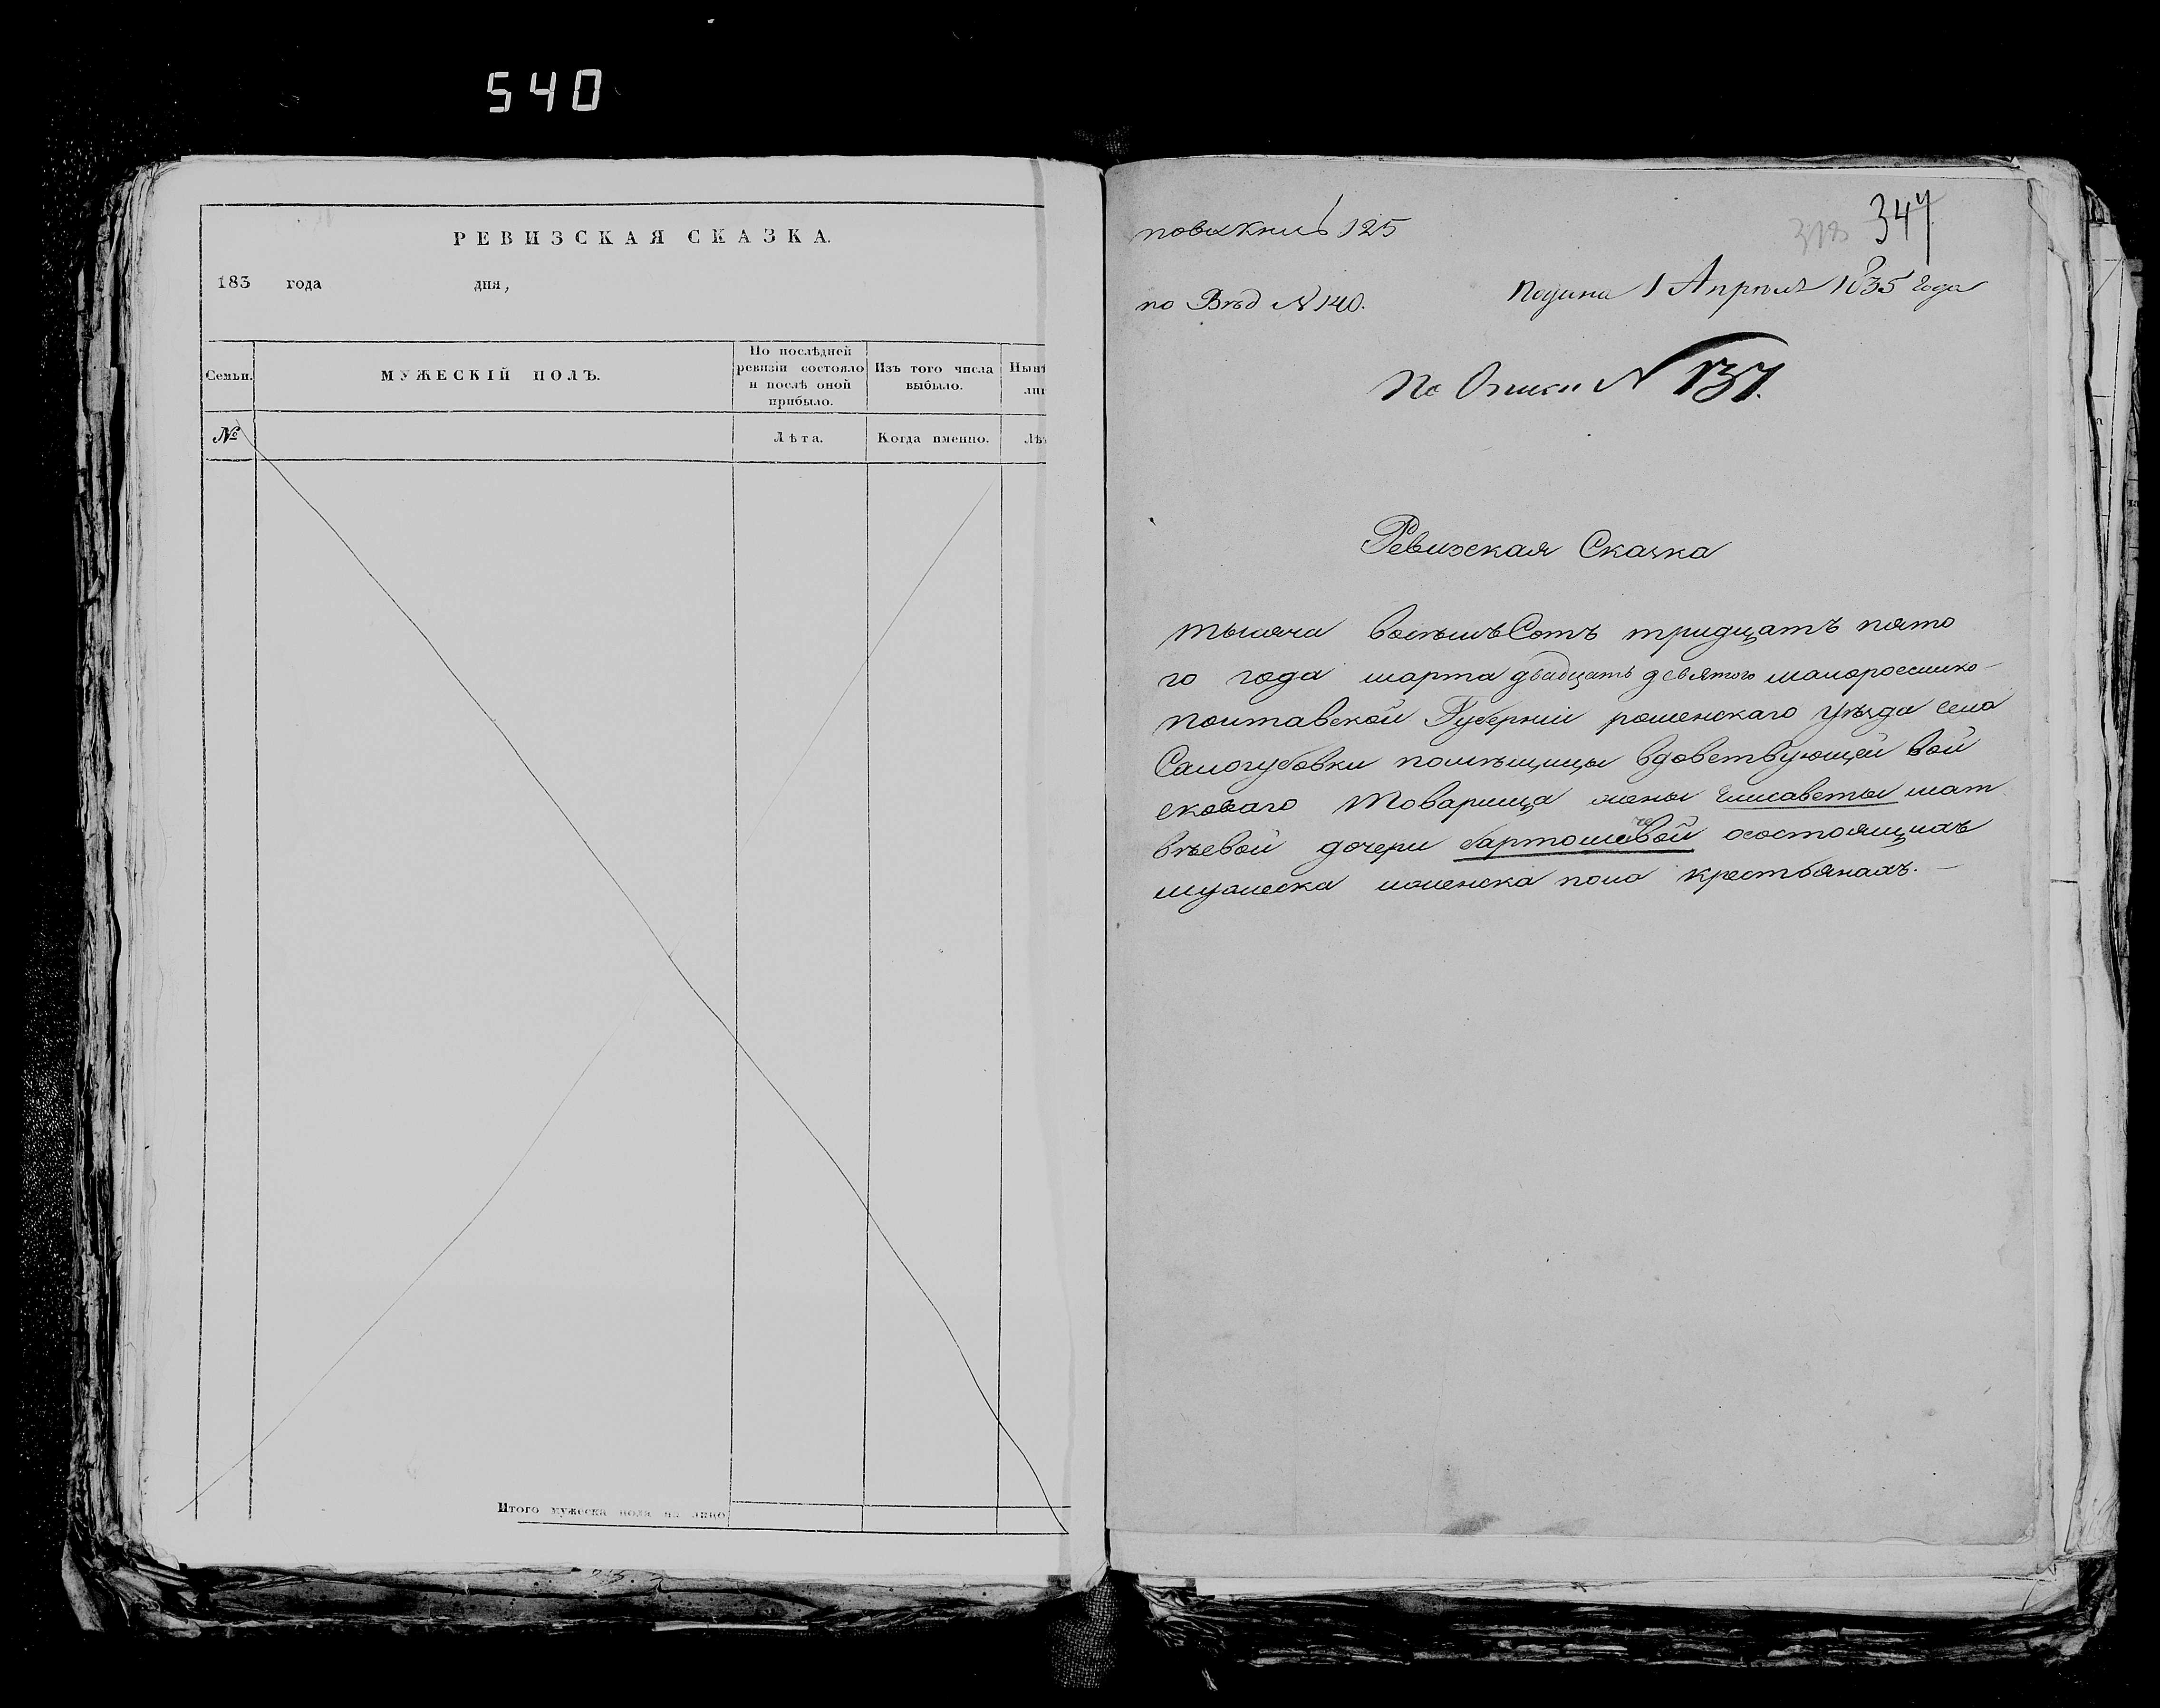 540
РЕВИЗСКАЯ СКАЗКА.
183 года дня,
Семьи.
МУЖЕСКІЙ ПОЛЪ.
По послѣдней
ревизіи состояло
и послѣ оной
прибыло.
Изъ того числа
выбыло.
Нынѣ
лиц
№
Лѣта.
Когда именно.
Лѣт
Итого мужеска пола на лицо
125
347
по Вѣд N 140.
Подана 1 Апрѣля 1835 года
По Описи N 137.
Ревизская Сказка
тысяча восѣмъ Сотъ тридцатъ пято
го года марта двадцать девятого малоросийско
полтавской Губерніи роменскаго уѣзда села
Самогубовки помѣщицы вдовствующей вой
сковаго товарища жены Елисаветы мат
вѣевой дочери бартошевой осостоящихъ
мужеска иженска пола крестьянахъ.